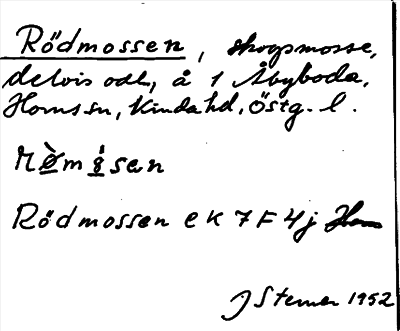 Rödmossen, skogsmosse,
delvis odl, å 1 Åbyboda,
Horns sn, Kinda hd, Östg. l.
Rödmossen ek 7F 4j Horn
J Sterner 1952